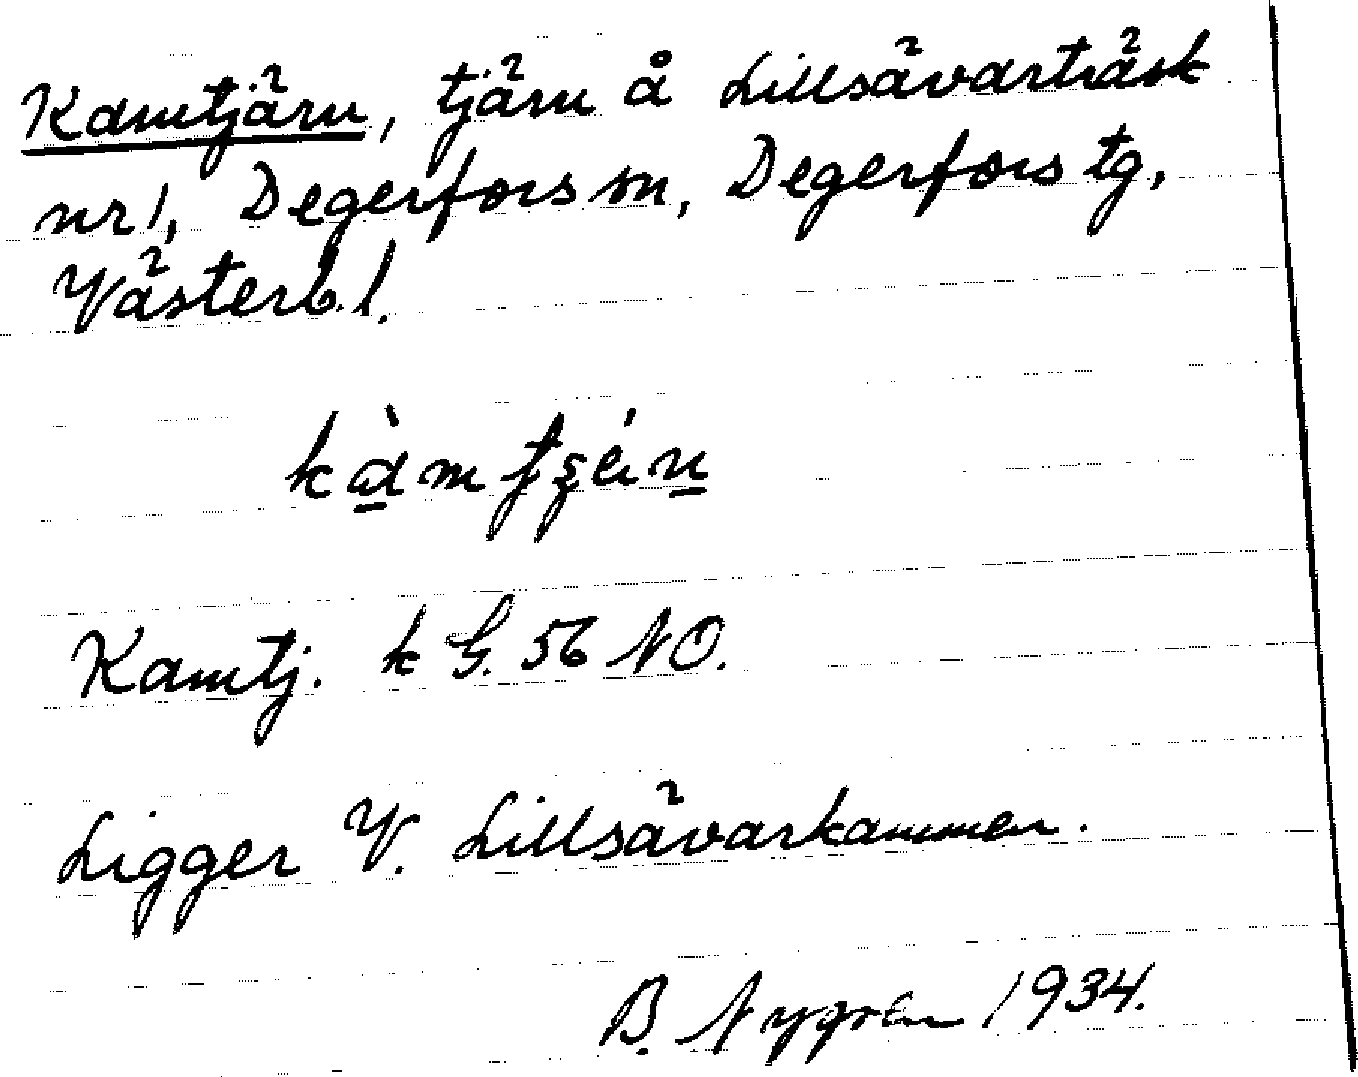 Kamtjärn, tjärn å Lillsävarträsk
nr 1, Degerfors sn, Degerfors tg,
Västerb. l.
Kamtj. k G. 56 NO.
Ligger V. Lillsävarkammen.
B. Nygren 1934.